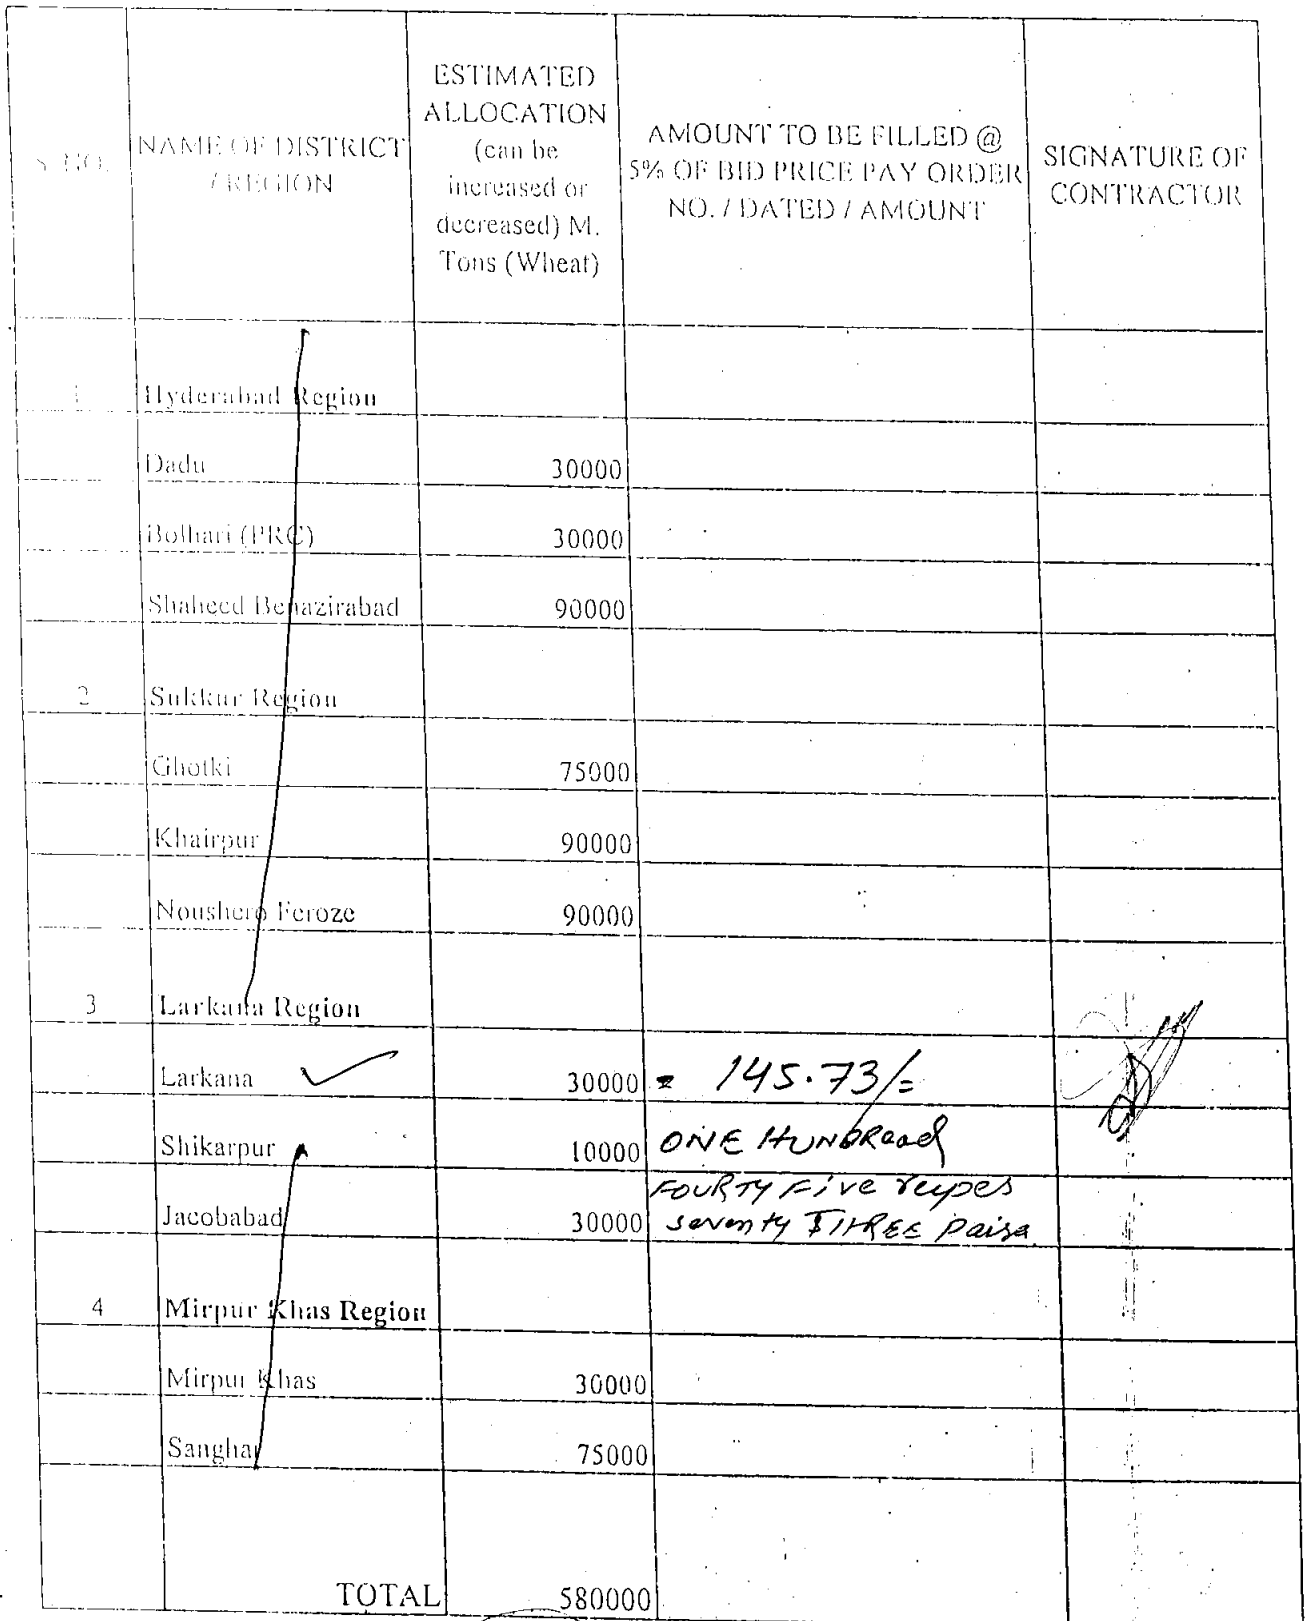 S. NO.
NAME OF DISTRICT
/ REGION
ESTIMATED
ALLOCATION
(can be
increased or
decreased) M.
Tons (Wheat)
AMOUNT TO BE FILLED @
5% OF BID PRICE PAY ORDER
NO. / DATED / AMOUNT
SIGNATURE OF
CONTRACTOR
1 Hyderabad Region
Dadu 30000
Bolhari (PRC) 30000
Shaheed Benazirabad 90000
2 Sukkur Region
Ghotki 75000
Khairpur 90000
Noushero Feroze 90000
3 Larkana Region
Larkana 30000 = 145.73/=
Shikarpur 10000 ONE HUNDRead
FOURTY Five rupes
Jacobabad 30000 seventy THREE paisa
4 Mirpur Khas Region
Mirpur Khas 30000
Sanghar 75000
TOTAL 580000